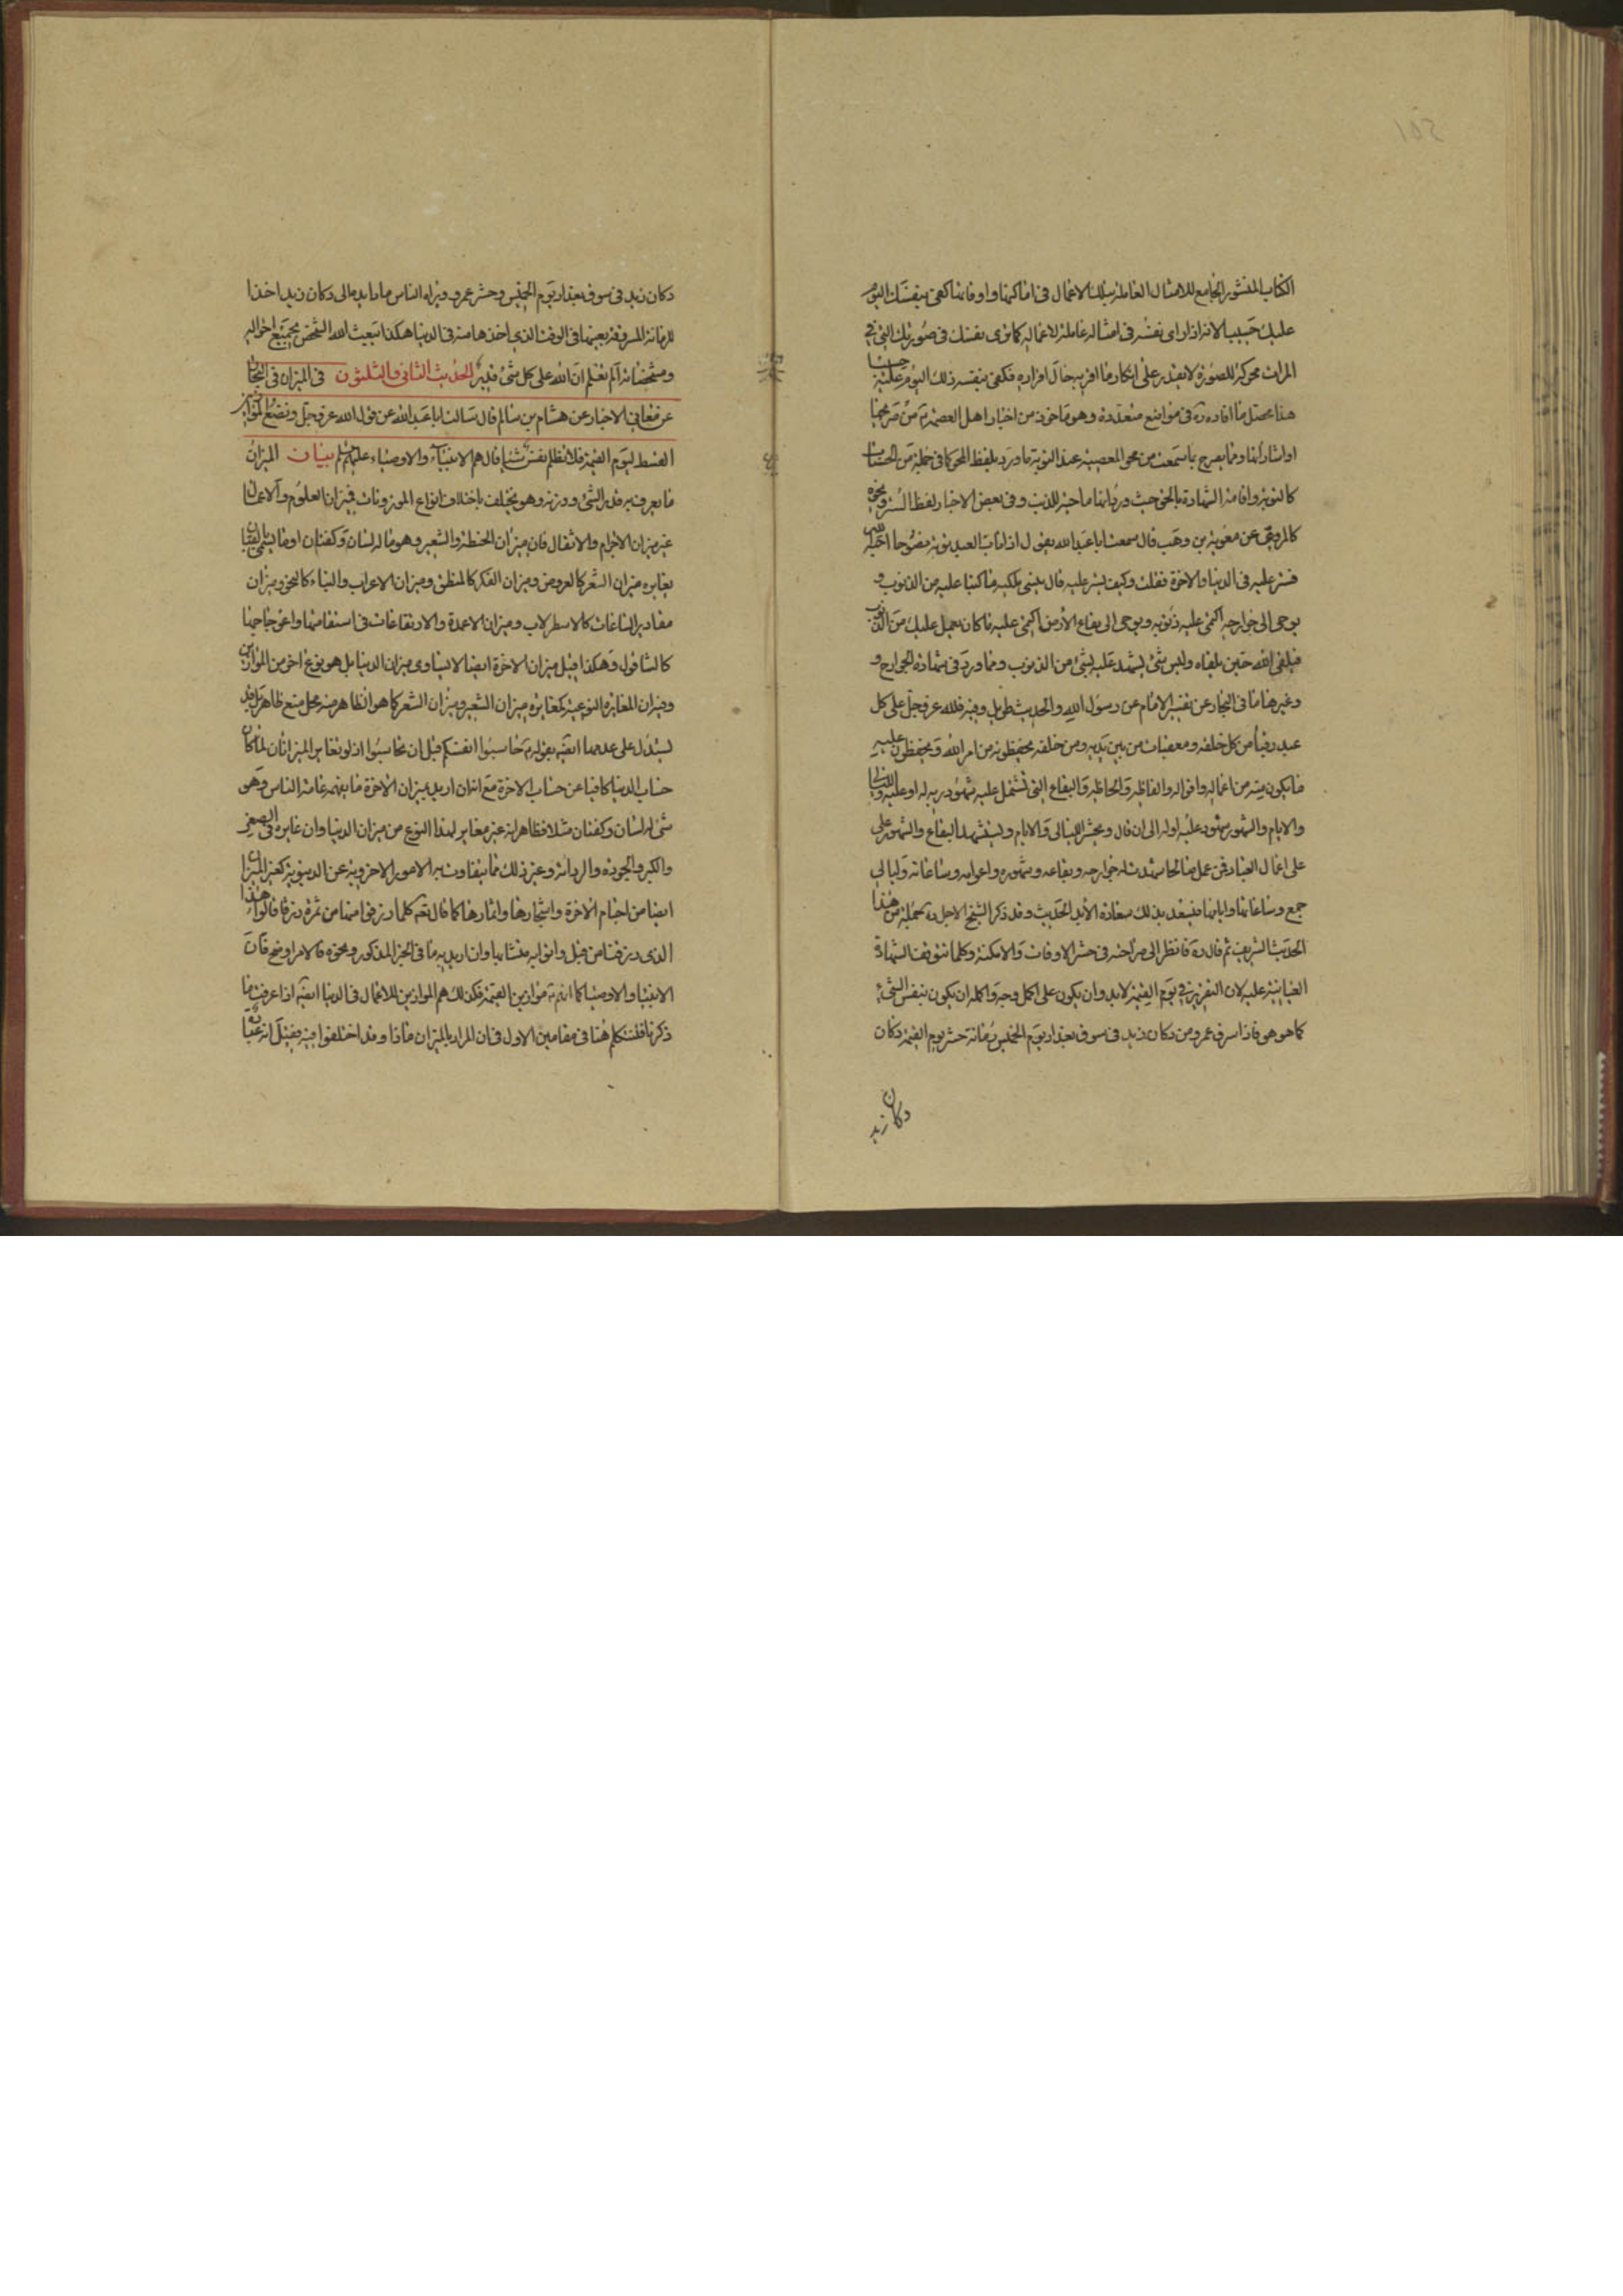 الكتاب المنشور الجامع للامثال العاملة بتلك الاعمال فى اماكنها واوقاتها كفى بنفسك اليوم
عليك حسيبا لانه اذا راى نفسه فى امثاله عاملة لاعماله كما ترى نفسك فى صورتك التى فى
المرات محركة للصورة لا يقدر على انكار ما اقر به حال افراده فكفى بنفسه ذلك اليوم عليه حسيبا
هذا محصل ما افاده ره فى مواضع متعددة وهو ماخوذ من اخبار اهل العصمة
او اشاراتها ومما يصرح بما سمعت من محو المعصية عند التوبة ما ورد بلفظ المحو كما فى جملة من الحسنات
كالتوبة واقامة الشهادة بالحق حيث ورد انها ماحية للذنب وفى بعض الاخبار لفظ الستر ونحوه
كالمروى عن معوية بن وهب قال سمعت ابا عبد الله يقول اذا تاب العبد توبة نصوحا احبه الله
فستر عليه فى الدنيا والاخرة فقلت وكيف يستر عليه قال ينسى ملكيه ما كتبا عليه من الذنوب و
يوحى الى جوارحه اكتمى عليه ذنوبه ويوحى الى بقاع الارض اكتمى عليه ما كان يعمل عليك من الذنوب
فيلقى الله حين يلقاه وليس شئ يشهد عليه بشئ من الذنوب ومما ورد فى شهادة الجوارح و
وغيرها ما فى البحار عن تفسير الامام عن رسول الله والحديث طويل وفيه فلله عز وجل على كل
عبد رقباء من كل خلقه ومعقبات من بين يديه ومن خلفه يحفظونه من امر الله ويحفظون عليه
ما يكون منه من اعماله واقواله والفاظه والحاظه والبقاع التى تشتمل عليه شهود ربه له او عليه والليالى
والايام والشهور شهود عليه او له الى ان قال ويحشر الليالى والايام ويستشهد البقاع والشهور على
على اعمال العباد فمن عمل صالحا شهدت له جوارحه وبقاعه وشهوره واعوامه وساعاته وليالى
جمع وساعاتها وايامها فيسعد بذلك سعادة الابد الحديث وقد ذكر الشيخ الاجل ره جملة من هذا
الحديث الشريف ثم قال ره فانظر الى صراحته فى حشر الاوقات والامكنة وكلما تتوقف الشهادة
العيانية عليه لان التقرير فى يوم القيمة لابد وان يكون على اكمل وجه واكمله ان يكون بنفس الشئ
كما هو هو فاذا سرق عمرو من دكان زيد فى سوق بغداد يوم الخميس رمانة حشر يوم القيمة دكان
دكان زيد
دكان زيد فى سوق بغداد يوم الخميس وحشر عمرو ويراه الناس مادا يده الى دكان زيد اخذا
للرمانة المسروقة بعينها فى الوقت الذى اخذها منه فى الدنيا هكذا يبعث الله الشخص بجميع احواله
ومشخصاته الم تعلم ان الله على كل شئ قدير الحديث الثانى والثلثون فى الميزان فى البحار
عن معانى الاخبار عن هشام بن سالم قال سالت ابا عبد الله عن قول الله عز وجل ونضع الموازين
القسط ليوم القيمة فلا تظلم نفس شيئا قال هم الانبياء والاوصياء عليهم السلم بيان الميزان
ما يعرف به قدر الشئ ووزنه وهو يختلف باختلاف انواع الموزونات فميزان العلوم والاعمال
غير ميزان الاجرام والاثقال فان ميزان الحنطة والشعير وهو ما له لسان وكفتان او ما يسمى بالقبان
يغايره ميزان الشعر كالعروض وميزان الفكر كالمنطق وميزان الاعراب والبناء كالنحو وميزان
مقادير الساعات كالاسطرلاب وميزان الاعمدة والارتفاعات فى استقامتها واعوجاجها
كالشاقول وهكذا فقيل ميزان الاخرة ايضا لا يساوى ميزان الدنيا بل هو نوع اخر من الموازين
وميزان المغايرة النوعية كمغايرة ميزان الشعير وميزان الشعر كما هو الظاهر
يستدل على عدمها ايضا بقوله حاسبوا انفسكم قبل ان تحاسبوا اذ لو تغاير الميزانان لما كان
حساب الدنيا كافيا عن حساب الاخرة مع انه ان اريد بميزان الاخرة ما يفهمه عامة الناس وهو
شئ له لسان وكفتان مثلا فظاهر انه غير مغاير لهذا النوع من ميزان الدنيا وان غايره فى الصغر
والكبر والجودة والردائة وغير ذلك مما يتفاوت به الامور الاخروية عن الدنيوية كغير الميزان
ايضا من اجسام الاخرة واشجارها واثمارها كما قال تعالى كلما رزقوا منها من ثمرة رزقا قالوا هذا
الذى رزقنا من قبل واتوا به متشابها وان اريد به ما فى الخبر المذكور ونحوه فالامر اوضح فان
الانبياء والاوصياء كما انهم موازين القيمة فكذلك هم الموازين للاعمال فى الدنيا ايضا اذا عرفت ما
ذكرنا فلنتكلم هنا فى مقامين الاول فى ان المراد بالميزان ماذا وقد اختلفوا فيه فقيل انه